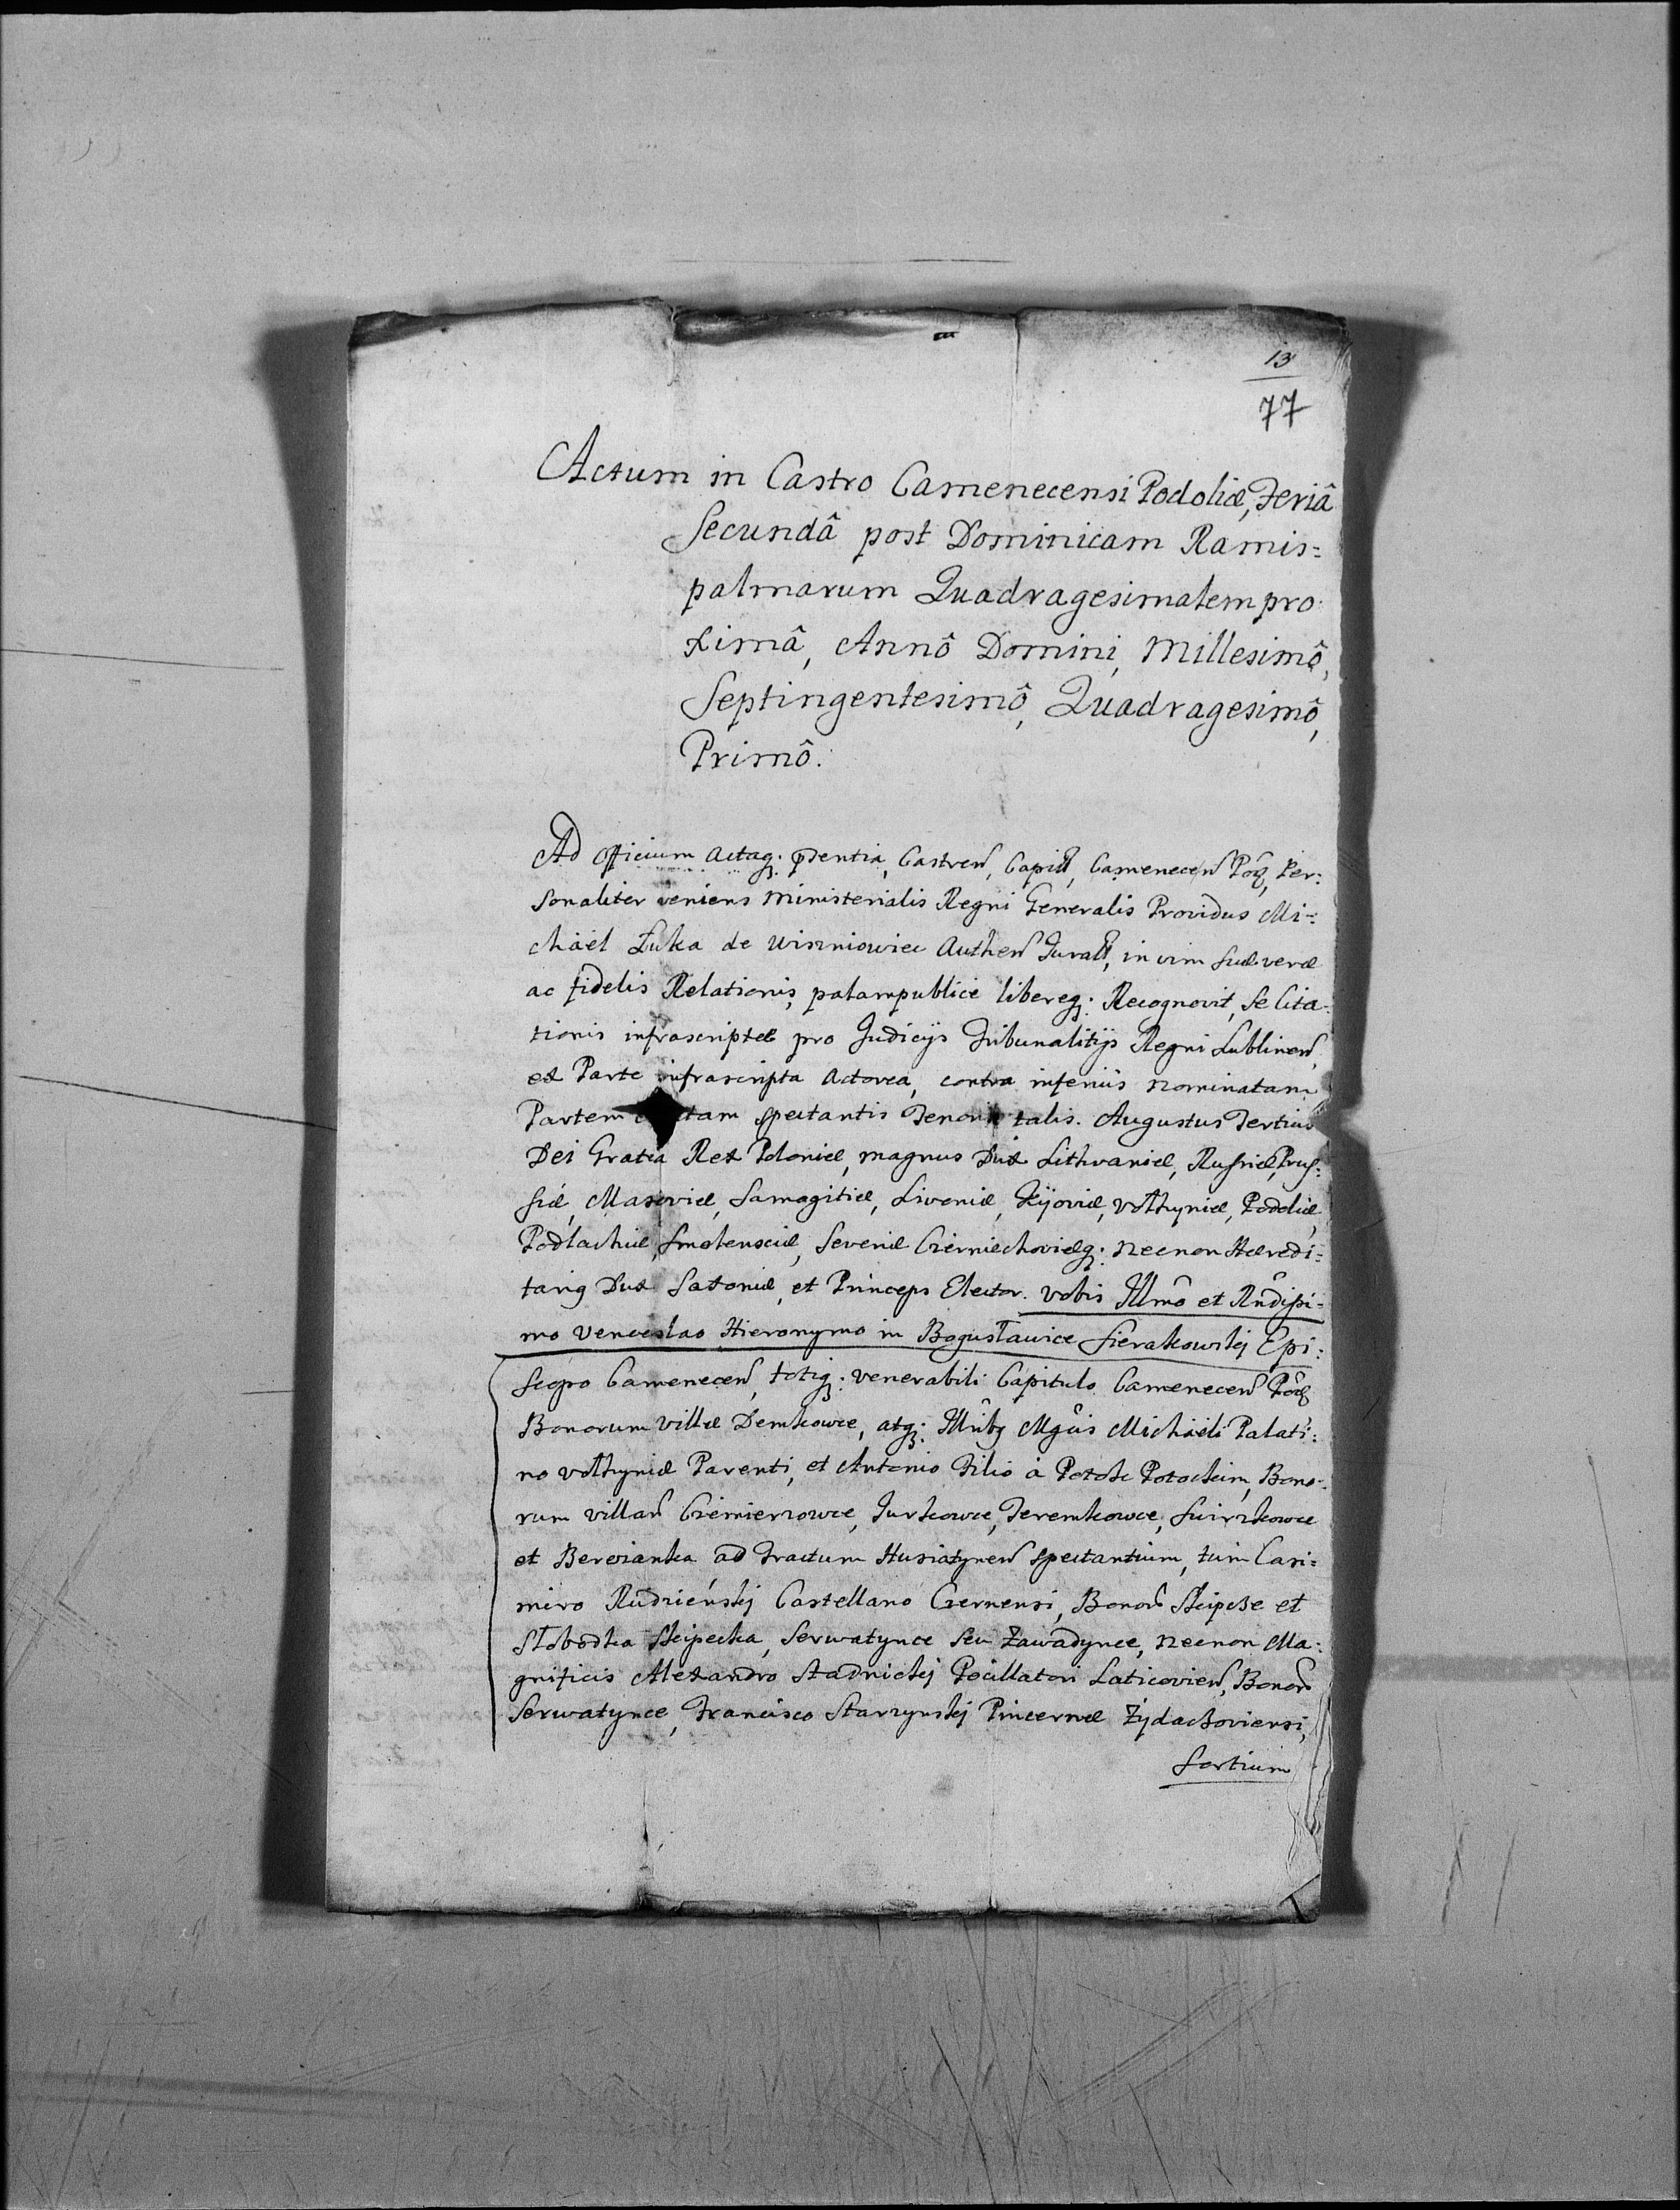 13
77
Actum in Castro Camenecensi Podoliæ, Feriâ
Secundâ post Dominicam Ramis=
palmarum Quadragesimalem pro
ximâ, Annô Domini, Millesimô,
Septingentesimô, Quadragesimô,
Primô.
Ad Officium Actaq; pñtia, Castreñ, Capitł, Cameneceñ Pod, Per:
sonaliter veniens Ministerialis Regni Generalis Providus Mi=
chäel Łuka de Wiszniowiec Autheñ Juratł, in vim suæ veræ
ac fidelis Relationis, palam publicè libereq; Recognovit, Se Cita=
tionis infrascriptæ pro Judicijs Tribunalitijs Regni Lublineñ,
ex Parte infrascripta Actorea, contra inferiùs Nominatam
Partem tam spectantis Tenoris talis. Augustus Tertius
Dei Gratia Rex Poloniæ, Magnus Dux Lithvaniæ, Russiæ, Prus=
siæ, Masoviæ, Samogitiæ, Livoniæ, Kijoviæ, Volhyniæ, Podoliæ,
Podlachiæ, Smolensciæ, Severiæ Czerniechoviæq; Necnon Hæredi=
tariꝯ Dux Saxoniæ, et Princeps Elector. Vobis Illmô et Rñdissi=
mo Venceslao Hieronymo in Bogusławice Sierakowskj Epi:
scopo Cameneceñ, totiq; Venerabili Capitulo Cameneceñ Pod
Bonorum Villæ Demkowce, atq; Illribꝯ Mgcis Michäeli Palati=
no Volhyniæ Parenti, et Antonio Filio à Potok Potockim, Bono=
rum Villar Czemierzowce, Jurkowce, Jeremkowce, Swirzkowce
et Berezianka ad Tractum Husiatyneñ spectantium, tùm Casi=
miro Rudzieńskj Castellano Czernensi, Bonor Skipcze et
Słobodka Skipecka, Serwatynce seu Zawadynce, Necnon Ma=
gnificis Alexandro Stadnickj Pocillatori Laticovieñ, Bonor
Serwatynce, Francisco Starzynskj Pincernæ Zydachoviensi,
Sortium